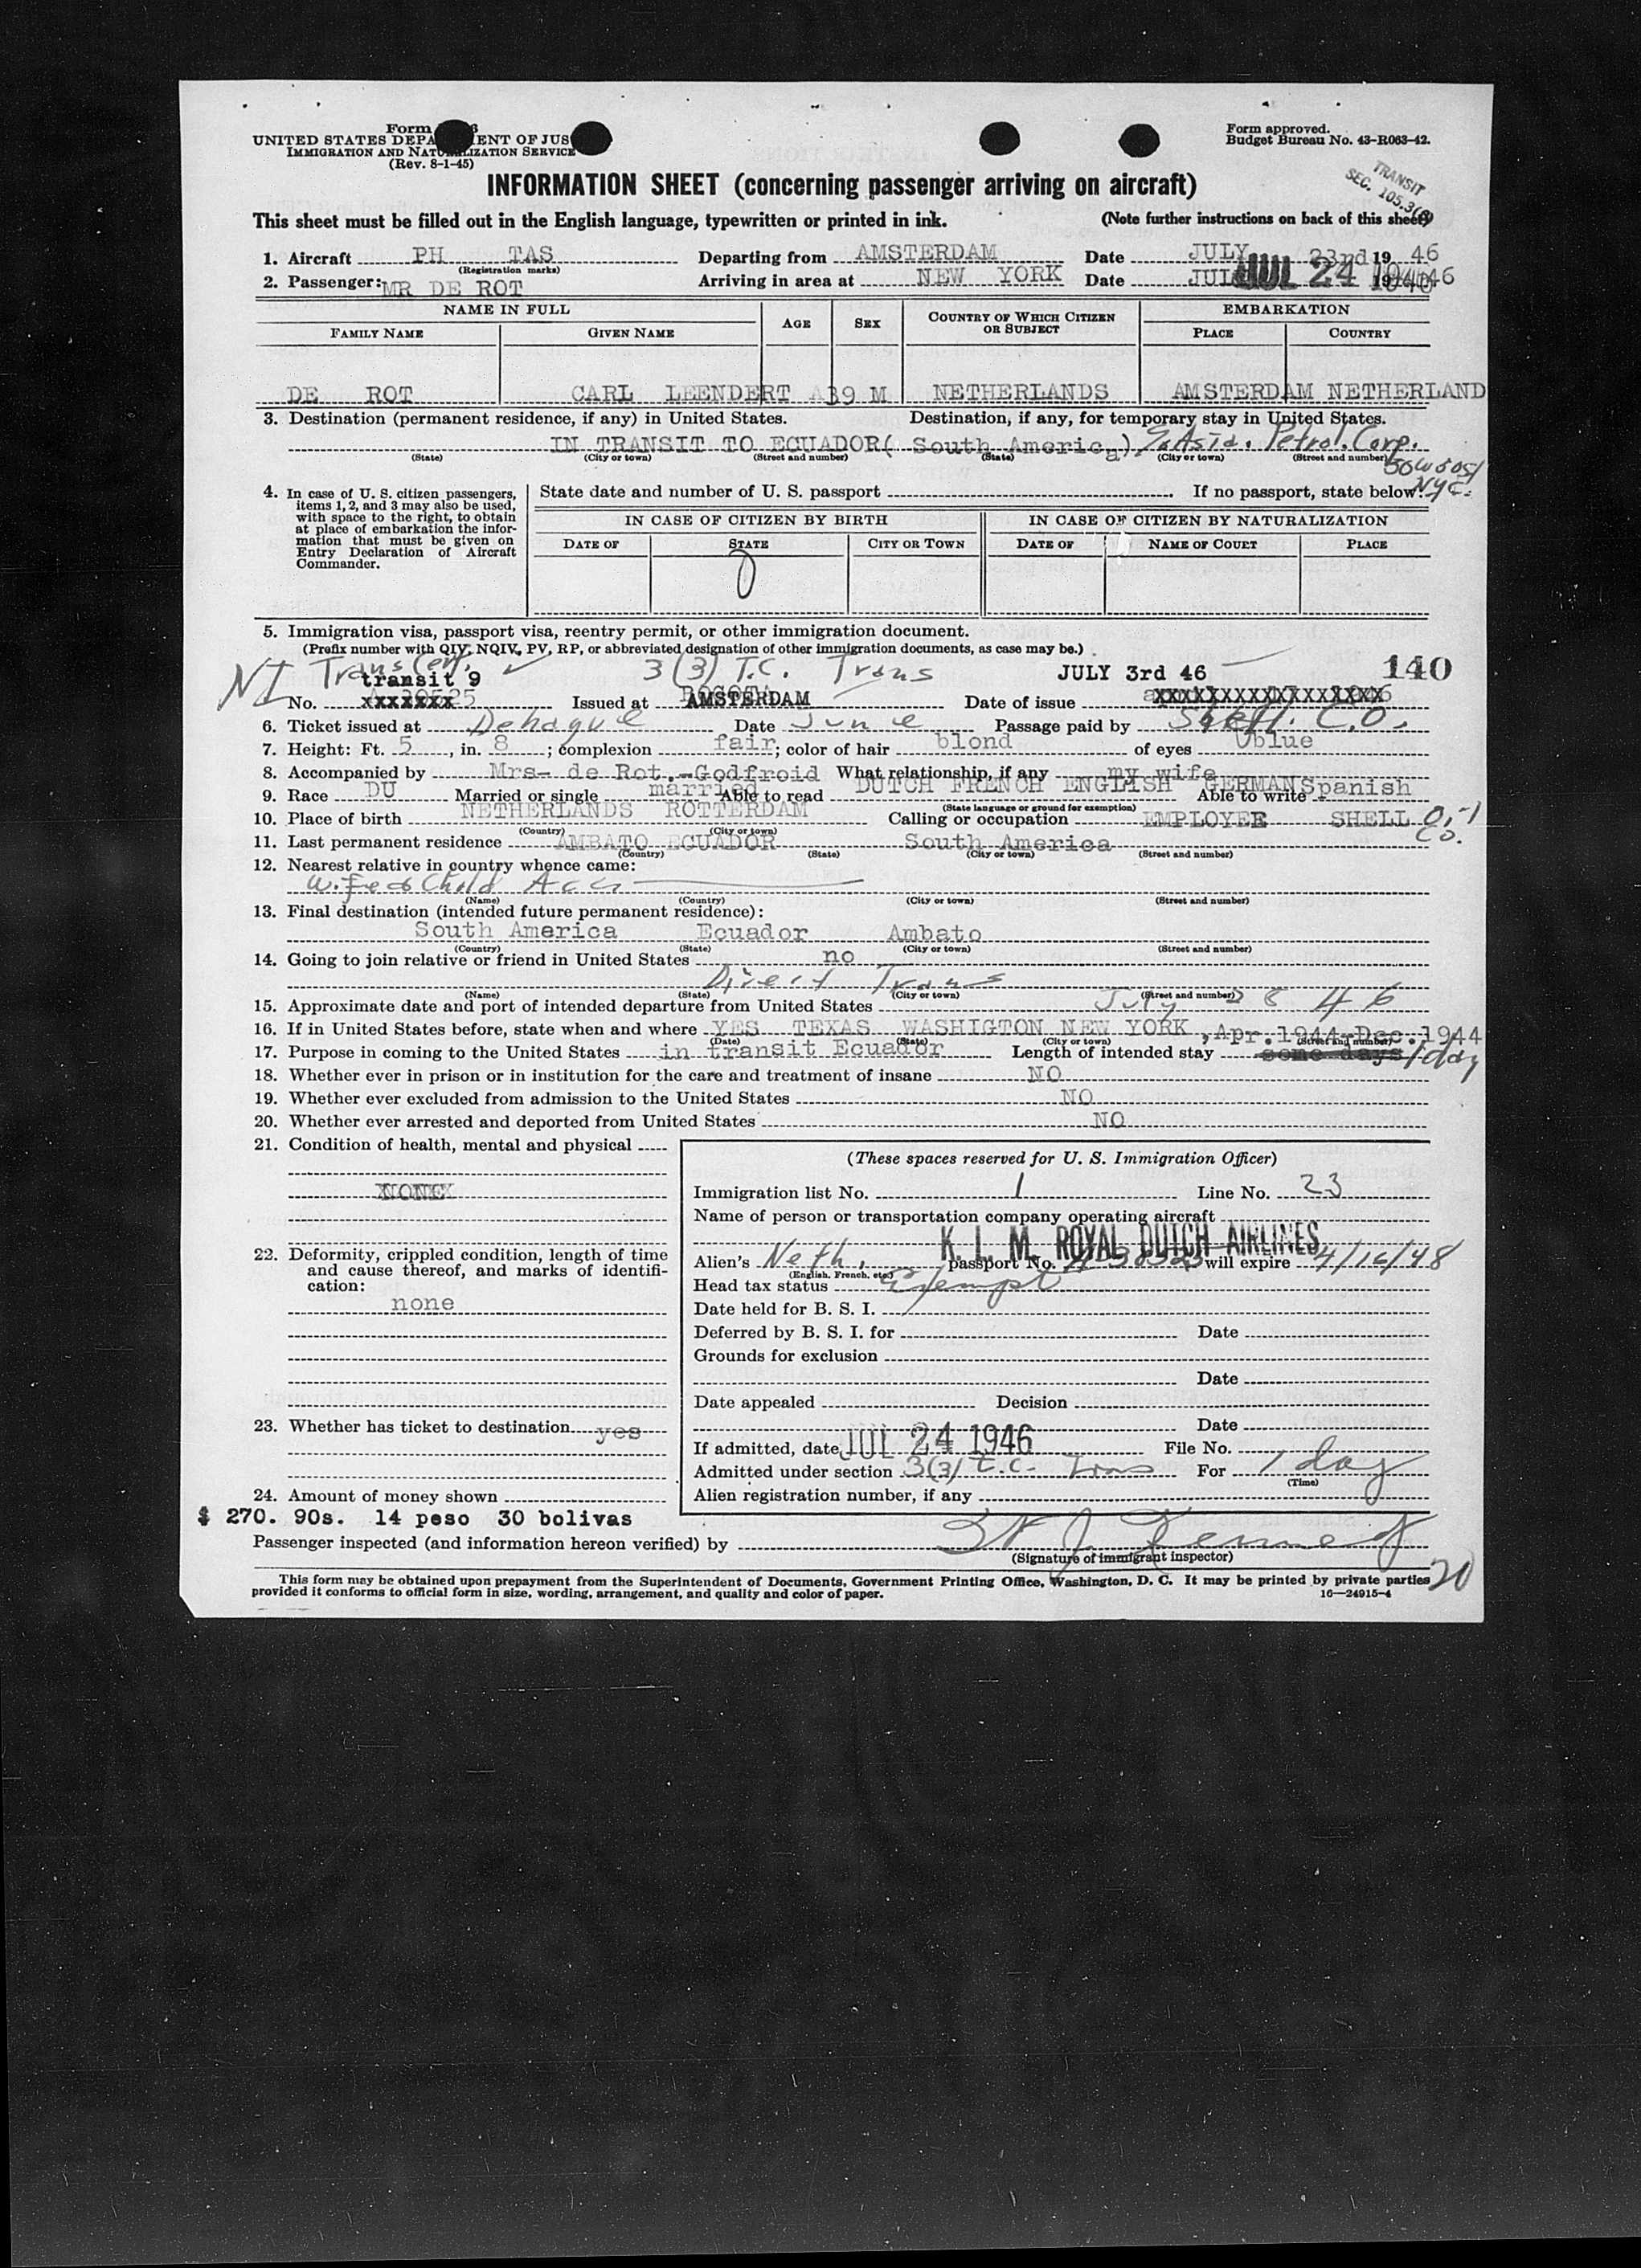 Form
UNITED STATES DEPA ENT OF JUS
IMMIGRATION AND NATURALIZATION SERVICE
(Rev. 8-1-45)
Form approved.
Budget Bureau No. 43-R063-42.
TRANSIT
SEC. 105.3
INFORMATION SHEET (concerning passenger arriving on aircraft)
This sheet must be filled out in the English language, typewritten or printed in ink. (Note further instructions on back of this sheet)
1. Aircraft PH TAS Departing from AMSTERDAM Date JULY 23rd 19 46
(Registration marks)
2. Passenger: MR DE ROT Arriving in area at NEW YORK Date JUL 24 1946
NAME IN FULL AGE SEX COUNTRY OF WHICH CITIZEN OR SUBJECT EMBARKATION
FAMILY NAME GIVEN NAME PLACE COUNTRY
DE ROT CARL LEENDERT 39 M NETHERLANDS AMSTERDAM NETHERLAND
3. Destination (permanent residence, if any) in United States. Destination, if any, for temporary stay in United States.
IN TRANSIT TO ECUADOR( South America) Asia. Petrol. Corp.
(State) (City or town) (Street and number) (State) (City or town) (Street and number)
50 W 50 St
NYC.
4. In case of U. S. citizen passengers, items 1, 2, and 3 may also be used, with space to the right, to obtain at place of embarkation the information that must be given on Entry Declaration of Aircraft Commander.
State date and number of U. S. passport If no passport, state below:
IN CASE OF CITIZEN BY BIRTH IN CASE OF CITIZEN BY NATURALIZATION
DATE OF STATE CITY OR TOWN DATE OF NAME OF COURT PLACE
5. Immigration visa, passport visa, reentry permit, or other immigration document.
(Prefix number with QIV, NQIV, PV, RP, or abbreviated designation of other immigration documents, as case may be.)
NI Trans Cert. 3(3) T.C. Trans JULY 3rd 46 140
transit 9
No. xxxxxxx Issued at AMSTERDAM Date of issue xxxxxxxxxxxxxxxxxx
6. Ticket issued at Dehague Date June Passage paid by Shell. C.O.
7. Height: Ft. 5, in. 8; complexion fair; color of hair blond of eyes blue
8. Accompanied by Mrs- de Rot.-Godfroid What relationship, if any my wife
9. Race DU Married or single married Able to read DUTCH FRENCH ENGLISH GERMAN Spanish Able to write
(State language or ground for exemption)
10. Place of birth NETHERLANDS ROTTERDAM Calling or occupation EMPLOYEE SHELL Oil Co.
(Country) (City or town)
11. Last permanent residence AMBATO ECUADOR South America
(Country) (State) (City or town) (Street and number)
12. Nearest relative in country whence came:
Wife & Child Acc
(Name) (Country) (City or town) (Street and number)
13. Final destination (intended future permanent residence):
South America Ecuador Ambato
(Country) (State) (City or town) (Street and number)
14. Going to join relative or friend in United States no
Direct Trans
(Name) (State) (City or town) (Street and number)
15. Approximate date and port of intended departure from United States July 28 46
16. If in United States before, state when and where YES TEXAS WASHIGTON NEW YORK , Apr. 1944-Dec. 1944
(Date) (State) (City or town) (Street and number)
17. Purpose in coming to the United States in transit Ecuador Length of intended stay some days 1 day
18. Whether ever in prison or in institution for the care and treatment of insane NO
19. Whether ever excluded from admission to the United States NO
20. Whether ever arrested and deported from United States NO
21. Condition of health, mental and physical
NONE
22. Deformity, crippled condition, length of time and cause thereof, and marks of identification:
none
23. Whether has ticket to destination yes
24. Amount of money shown
$ 270. 90s. 14 peso 30 bolivas
(These spaces reserved for U. S. Immigration Officer)
Immigration list No. 1 Line No. 23
Name of person or transportation company operating aircraft
K. L. M. ROYAL DUTCH AIRLINES
Alien's Neth. passport No. will expire 4/16/48
(English, French, etc.)
Head tax status Exempt
Date held for B. S. I.
Deferred by B. S. I. for Date
Grounds for exclusion
Date
Date appealed Decision
Date
If admitted, date JUL 24 1946 File No.
Admitted under section 3(3) t.c. Trans For 1 day
(Time)
Alien registration number, if any
Passenger inspected (and information hereon verified) by
(Signature of immigrant inspector)
20
This form may be obtained upon prepayment from the Superintendent of Documents, Government Printing Office, Washington, D. C. It may be printed by private parties
provided it conforms to official form in size, wording, arrangement, and quality and color of paper. 16—24915-4